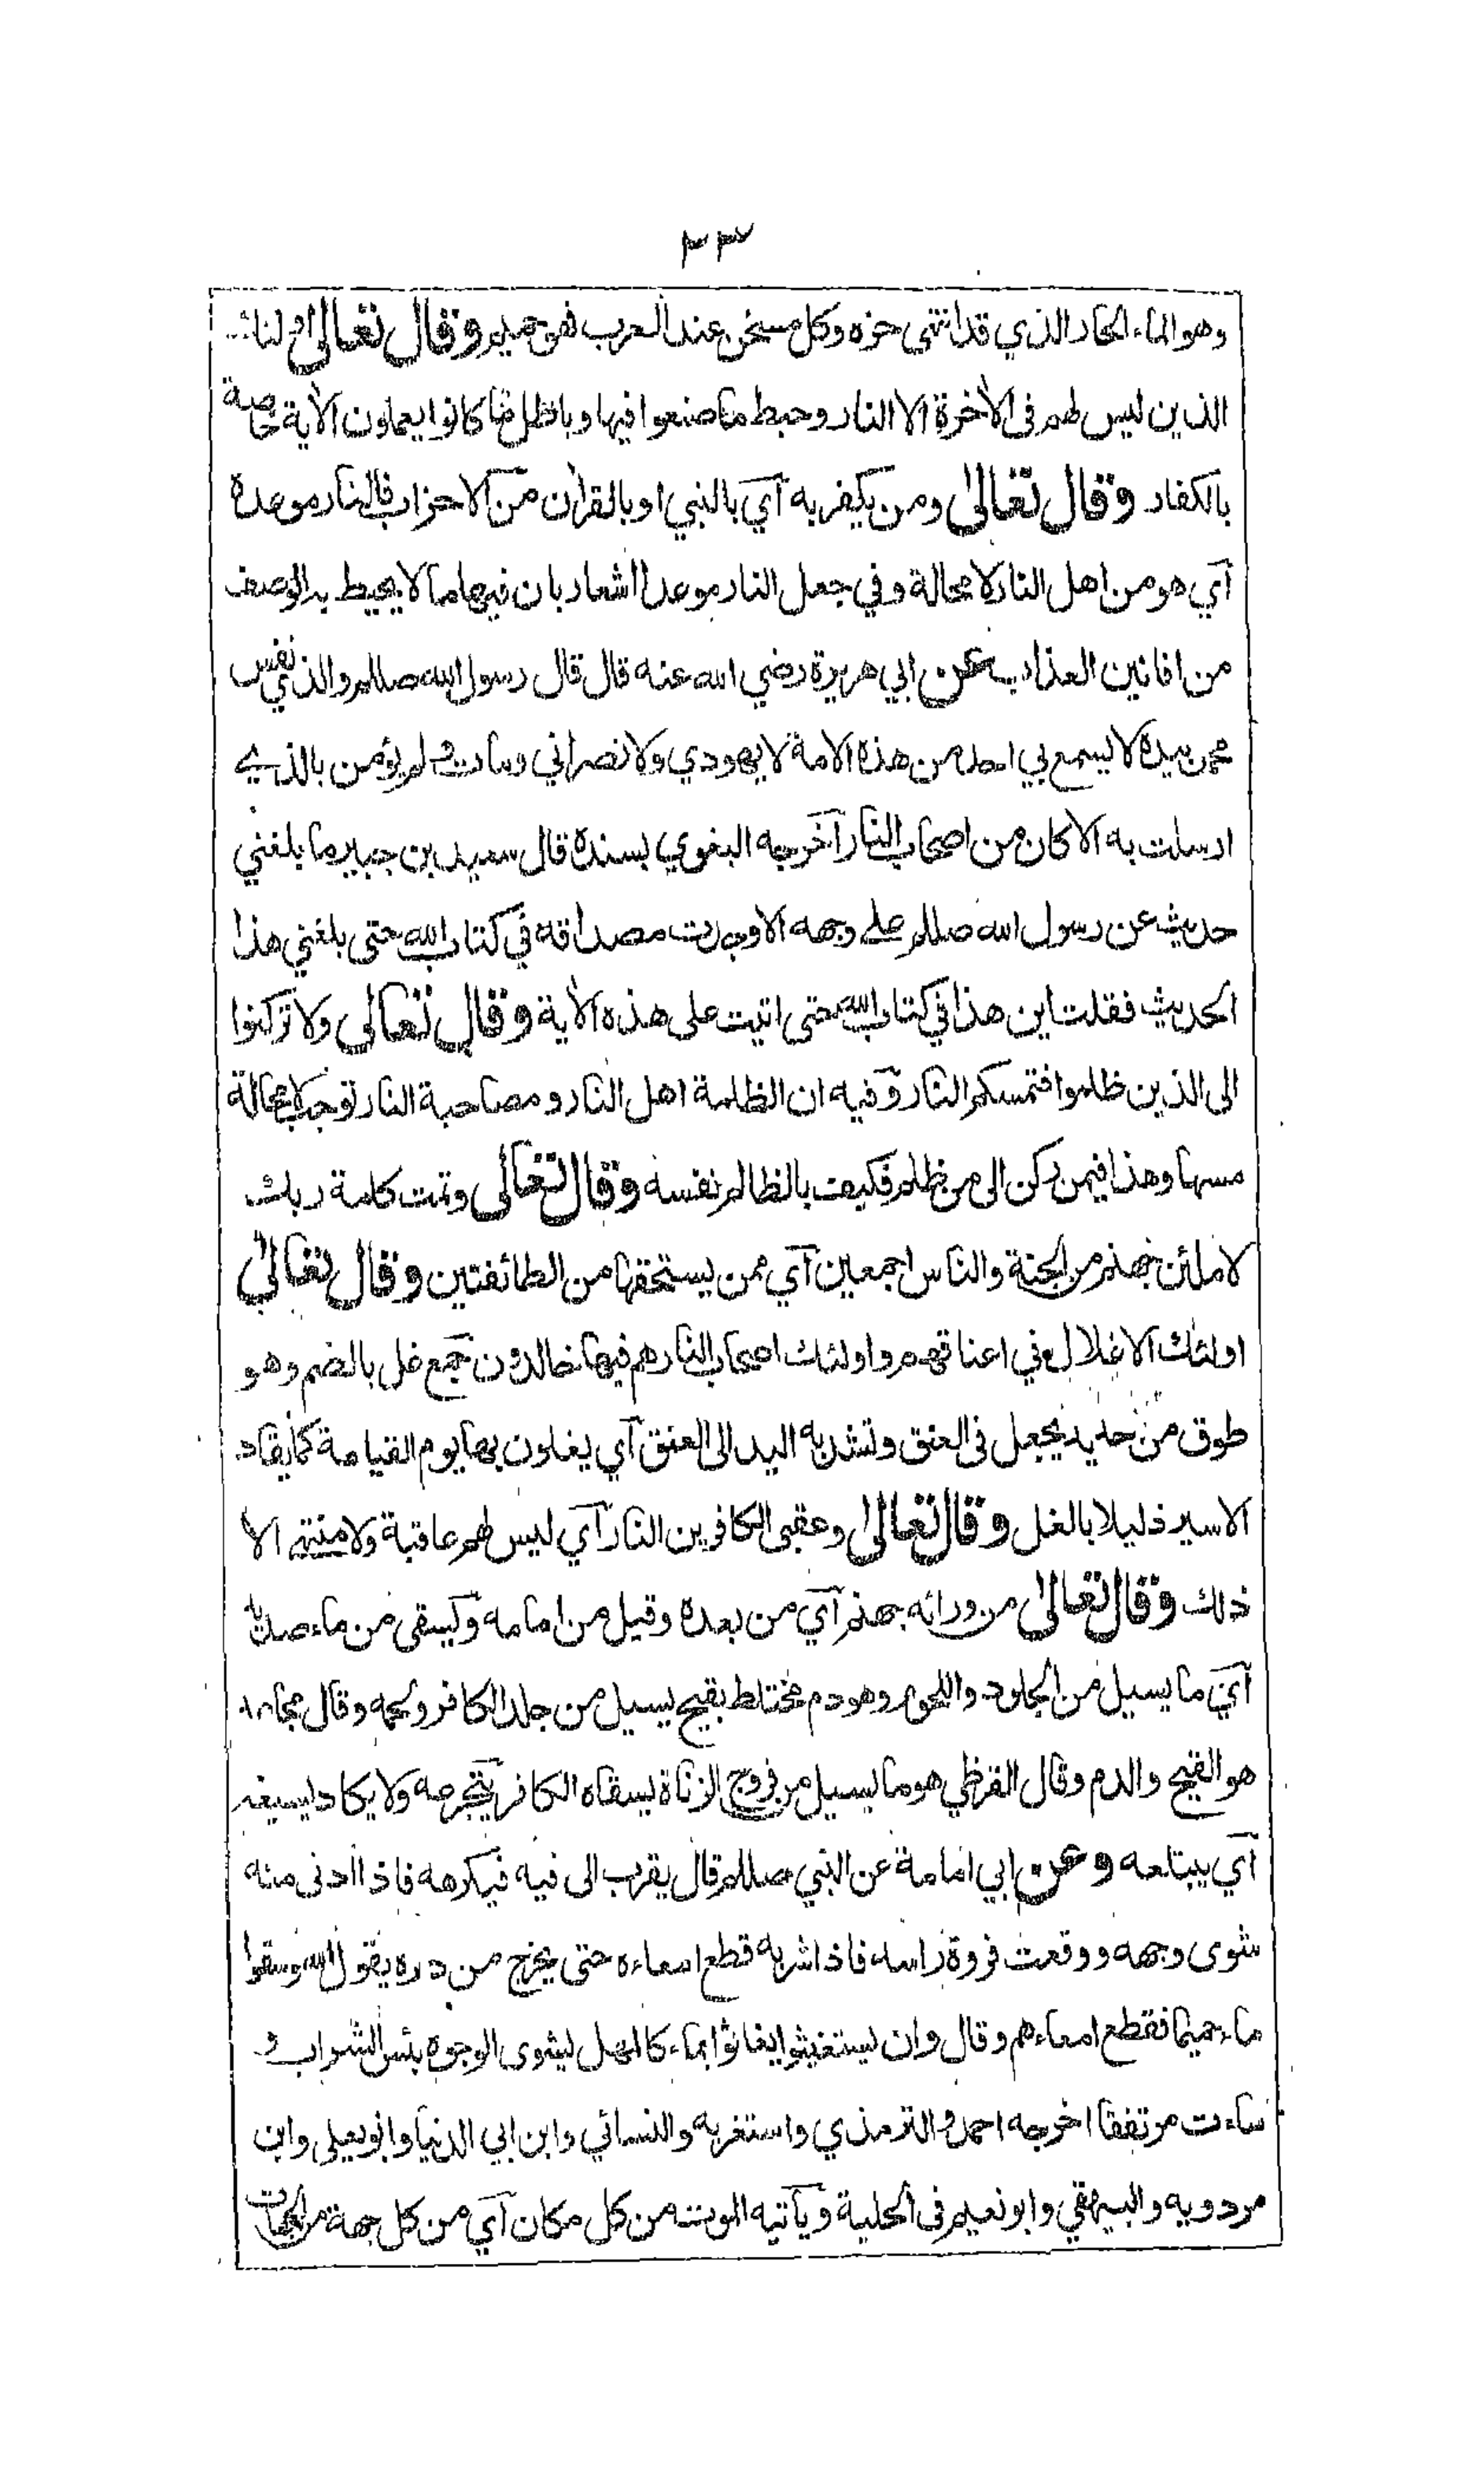 ٢٣
وهو الماء الحار الذي قد انتهى حره وكل مسخن عند العرب فهو حميم وقال تعالى اولئك
الذين ليس لهم فى الاخرة الا النار وحبط ما صنعوا فيها وباطل ما كانوا يعملون الآية خاصة
بالكفار وقال تعالى ومن يكفر به آي بالنبي او بالقرآن من الاحزاب فالنار موعدة
آي هو من اهل النار لا محالة وفي جعل النار موعدا اشعار بان فيها ما لا يحيط به الوصف
من افانين العذاب عن ابي هريرة رضي الله عنه قال قال رسول الله صللم والذي نفس
محمد بيده لا يسمع بي احد من هذه الامة لا يهودي ولا نصراني ومات ولم يؤمن بالذي
ارسلت به الا كان من اصحاب النار آخرجه البغوي بسنده قال سعيد بن جبير ما بلغني
حديث عن رسول الله صللم على وجهه الا وجدت مصداقه في كتاب الله حتى بلغني هذا
الحديث فقلت اين هذا في كتاب الله حتى اتيت على هذه الآية وقال تعالى ولا تركنوا
الى الذين ظلموا فتمسكم النار وفيه ان الظلمة اهل النار ومصاحبة النار توجب لا محالة
مسها وهذا فيمن ركن الى من ظلم فكيف بالظالم نفسه وقال تعالى وتمت كلمة ربك
لاملئن جهنم من الجنة والناس اجمعين آي ممن يستحقها من الطائفتين وقال تعالى
اولئك الاغلال في اعناقهم واولئك اصحاب النار هم فيها خالدون جمع غل بالضم وهو
طوق من حديد يجعل فى العنق وتشد به اليد الى العنق آي يغلون بها يوم القيامة كما يقاد
الاسير ذليلا بالغل وقال تعالى وعقبى الكافرين النار آي ليس لهم عاقبة ولا منتهى الا
ذلك وقال تعالى من ورائه جهنم آي من بعده وقيل من امامه ويسقى من ماء صديد
آي ما يسيل من الجلود واللحوم وهو دم مختلط بقيح يسيل من جلد الكافر ولحمه وقال مجاهد
هو القيح والدم وقال القرظي هو ما يسيل من فروج الزناة يسقاه الكافر يتجرعه ولا يكاد يسيغه
آي يبتلعه وعن ابي امامة عن النبي صللم قال يقرب الى فيه فيكرهه فاذا ادنى منه
شوى وجهه ووقعت فروة راسه فاذا شربه قطع امعاءه حتى يخرج من دبره يقول الله وسقوا
ماء حميما فقطع امعاءهم وقال وان يستغيثوا يغاثوا بماء كالمهل يشوى الوجوه بئس الشراب و
ساءت مرتفقا اخرجه احمد والترمذي واستغربه والنسائي وابن ابي الدنيا وابو يعلى وابن
مردويه والبيهقي وابو نعيم فى الحلية ويآتيه الموت من كل مكان آي من كل جهة من الجهات